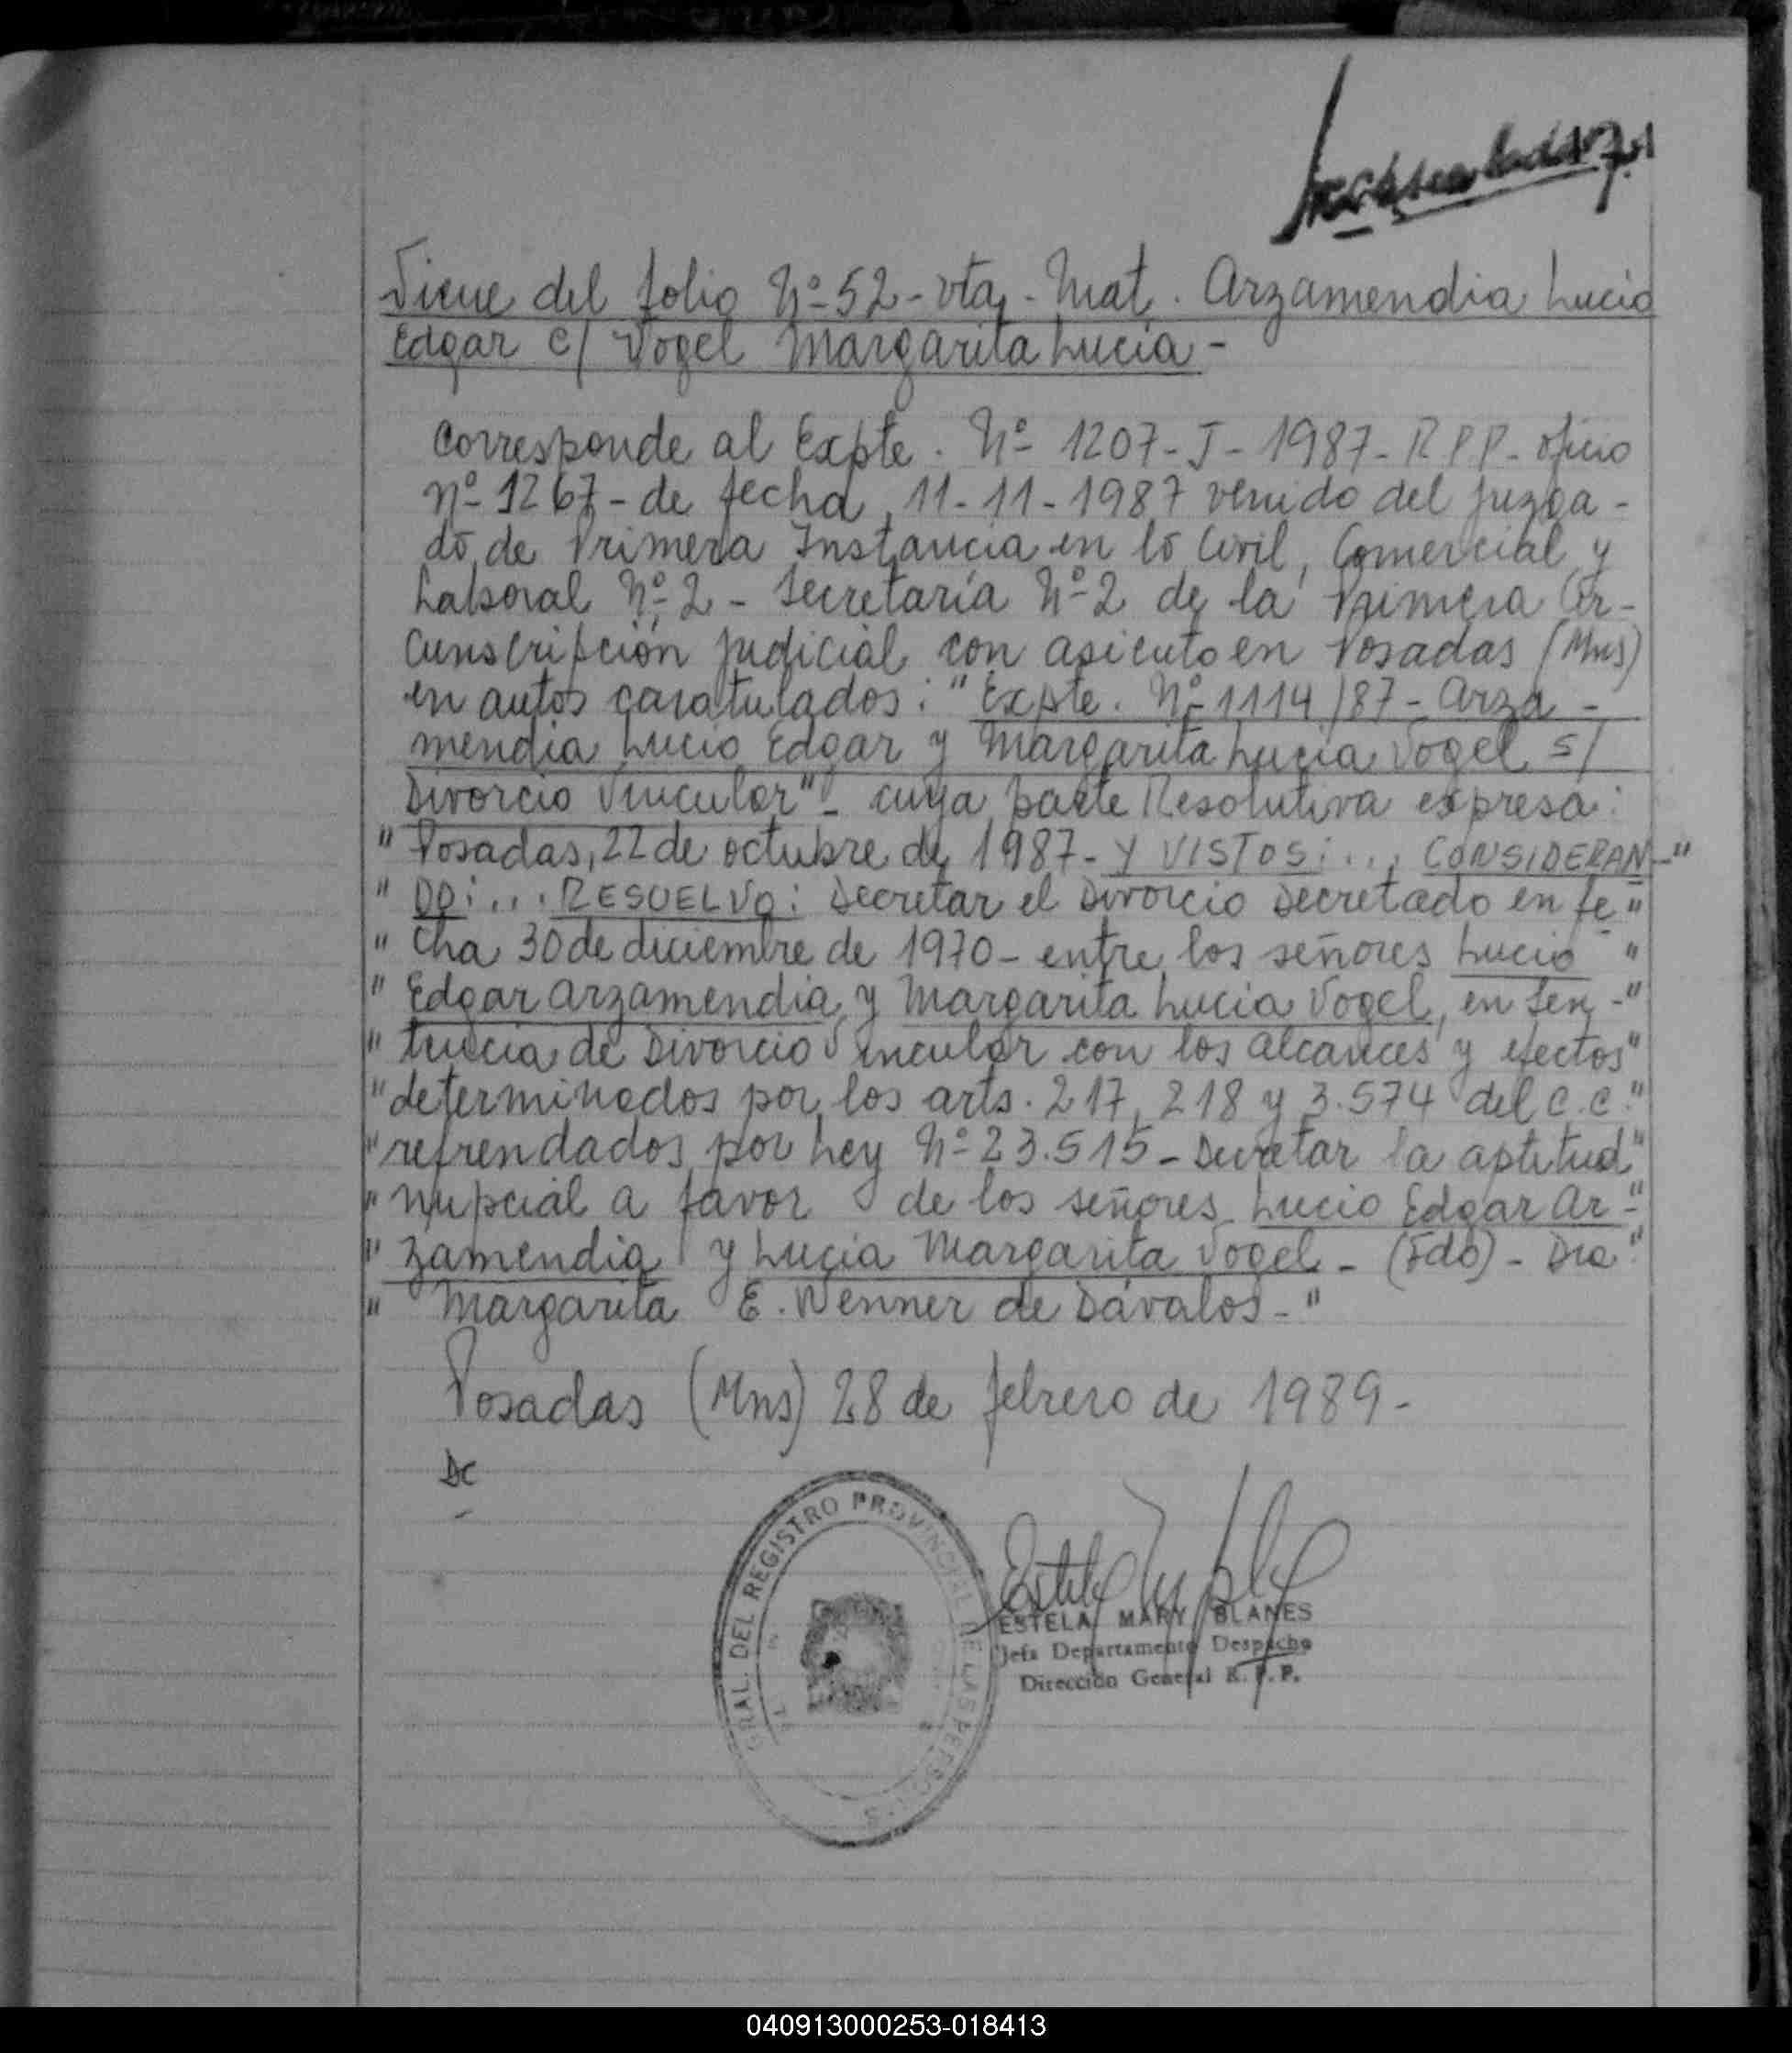 Viene del folio Nº 52 - vta - Mat. Arzamendia Lucio
Edgar c/ Vogel Margarita Lucia -
Corresponde al Expte. Nº 1207 - J - 1987 - R P.P. - oficio
Nº 1267 - de fecha 11-11-1987 venido del juzga-
do de Primera Instancia en lo Civil, Comercial y
Laboral Nº 2 - Secretaría Nº 2 de la Primera Cir-
cunscripción judicial con asiento en Posadas (Mns)
en autos caratulados: "Expte. Nº 1114/87 - Arza-
mendia Lucio Edgar y Margarita Lucia Vogel s/
Divorcio Vincular" - cuya parte Resolutiva expresa:
" Posadas, 22 de octubre de 1987 - Y VISTOS: ..., CONSIDERAN-"
" DO: ... RESUELVO: Decretar el Divorcio Decretado en fe "
" cha 30 de diciembre de 1970 - entre los señores Lucio "
" Edgar Arzamendia y Margarita Lucia Vogel, en sen-"
" tencia de Divorcio Vincular con los alcances y efectos"
" determinados por los arts. 217, 218 y 3.574 del C.C."
" refrendados por Ley Nº 23.515 - Decretar la aptitud"
" nupcial a favor de los señores Lucio Edgar Ar-"
" zamendia y Lucia Margarita Vogel - (Fdo) - Dra"
" Margarita E. Wenner de Dávalos - "
Posadas (Mns) 28 de febrero de 1989 -
DC
GRAL. DEL REGISTRO PROVINCIAL DE LAS PERSONAS
ESTELA MARY BLANES
Jefa Departamento Despacho
Dirección General R. P. P.
040913000253-018413